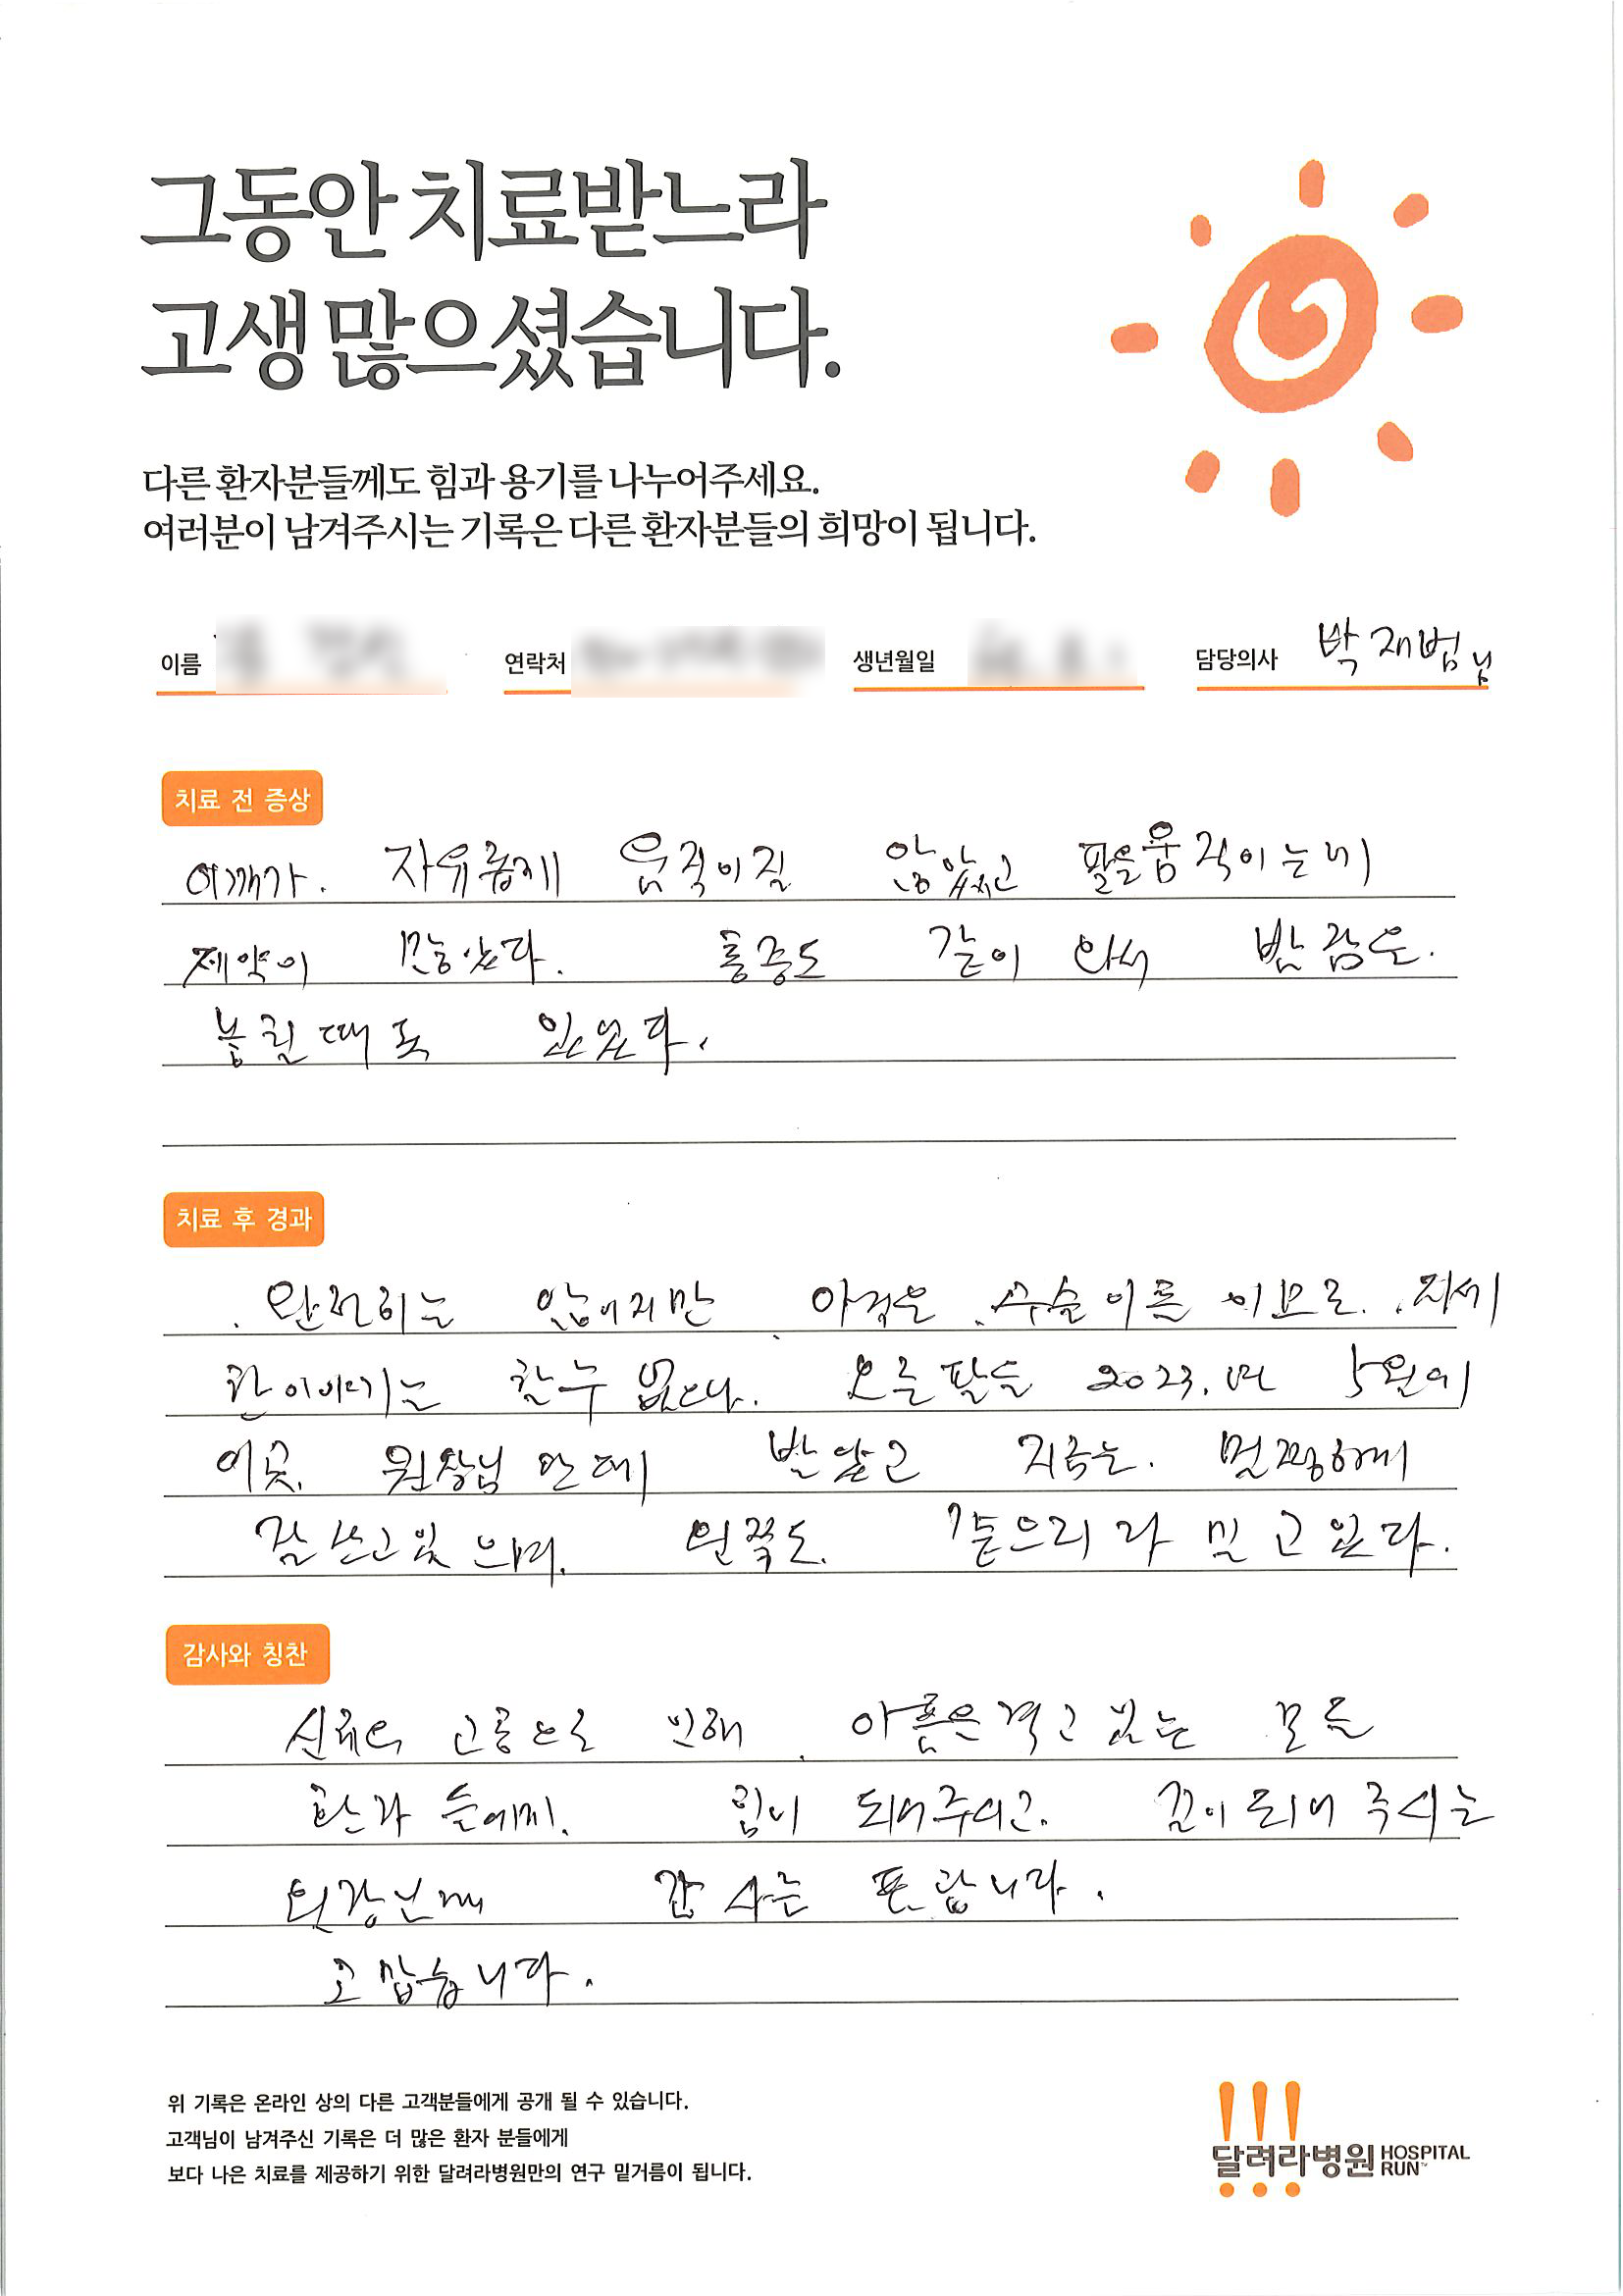 그동안 치료받느라
고생 많으셨습니다.
다른 환자분들께도 힘과 용기를 나누어주세요.
여러분이 남겨주시는 기록은 다른 환자분들의 희망이 됩니다.
이름 연락처 생년월일 담당의사 박재범님
치료 전 증상
어깨가. 자유롭게 움직이질 않았고 팔을 움직이는데
제약이 많았다. 통증도 같이 와서 밤잠을.
놓칠때도 있었다.
치료 후 경과
완전히는 않이지만 아직은 수술이틀 이므로. 자세
한이야기는 할수 없다. 오른팔을 2023.년 5월에
이곳. 원장님 한테 받았고 지금은. 멀쩡하게
잘쓰고 있으며. 왼쪽도. 같으리라 믿고 있다.
감사와 칭찬
신체의 고통으로 인해 아픔은 격고 있는 모든
환자 들에게. 힘이 되어주시고. 꿈이 되어 주시는
원장님께 감사를 표합니다.
고맙습니다.
위 기록은 온라인 상의 다른 고객분들에게 공개 될 수 있습니다.
고객님이 남겨주신 기록은 더 많은 환자 분들에게
보다 나은 치료를 제공하기 위한 달려라병원만의 연구 밑거름이 됩니다.
달려라병원 HOSPITAL RUN